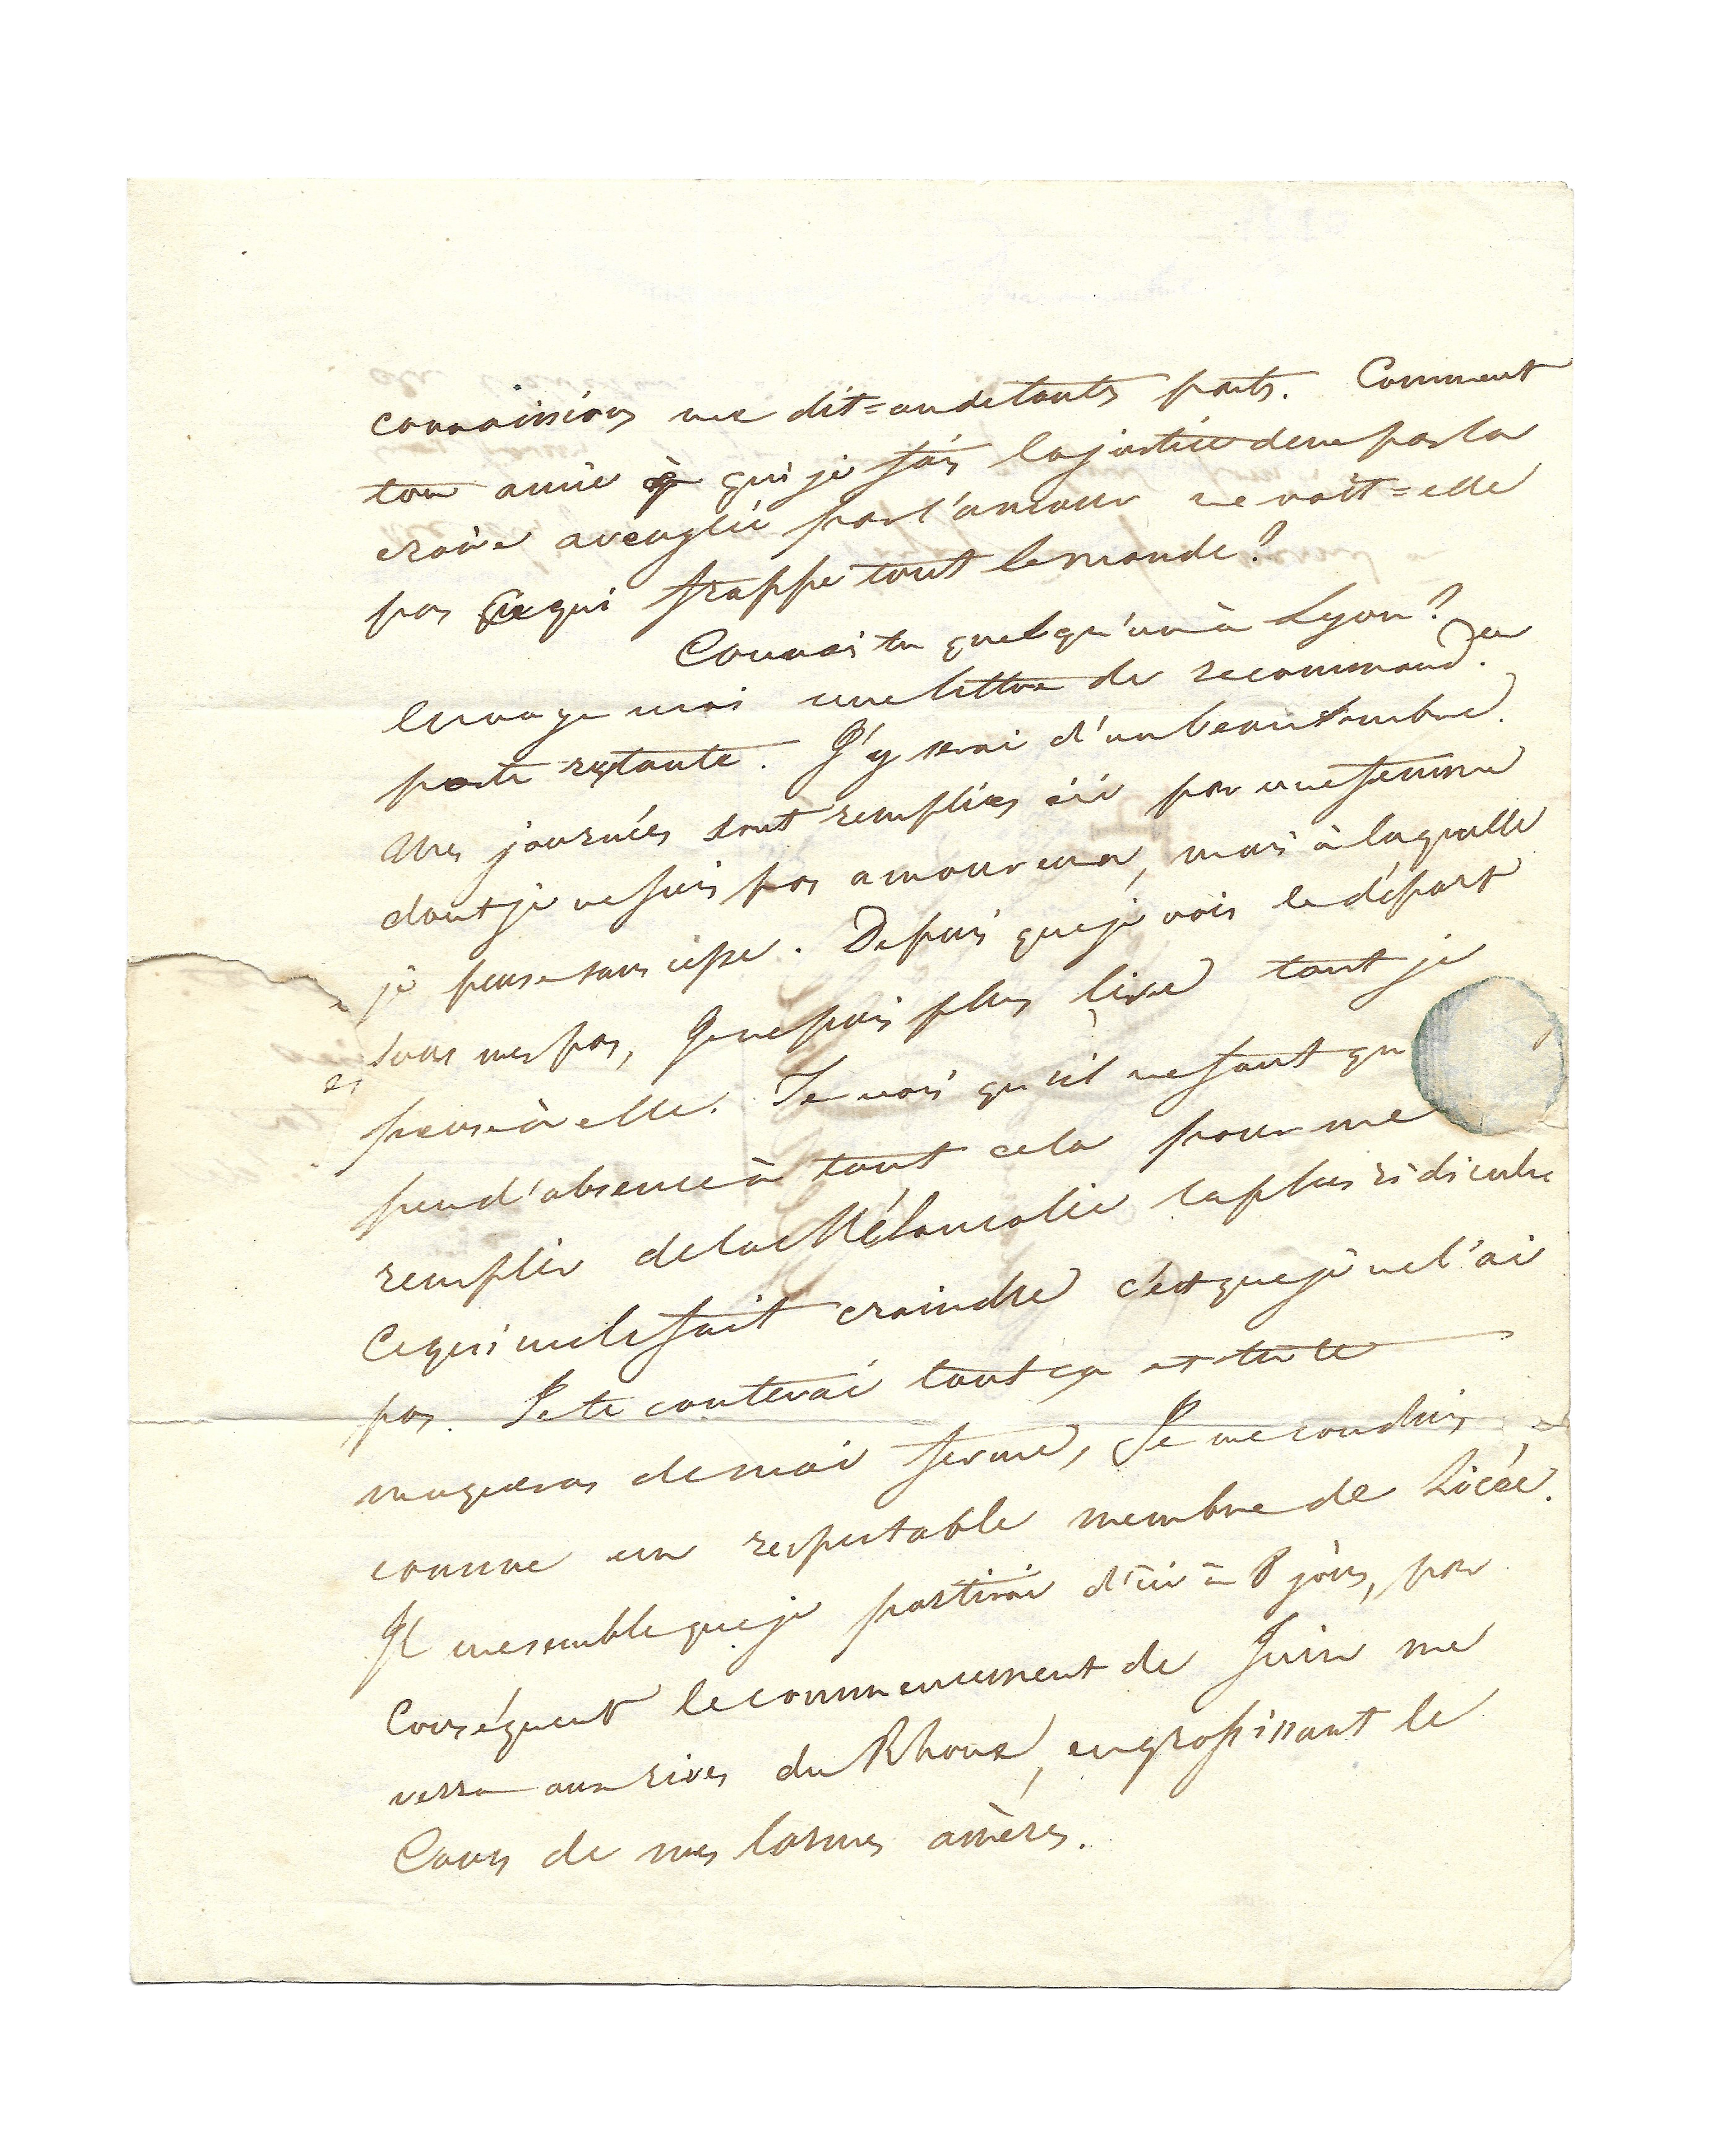 connaissions me dit=on de toutes parts. Comment
ton amie à qui je fais la justice de ne pas la
croire aveuglée par l'amour ne voit=elle
pas Ce qui frappe tout le monde?
Connais tu quelqu'un à Lyon?
Envoye moi une lettre de recommand.on
poste restante. J'y serai d'un beau sombre.
Mes journées sont remplies ici par une femme
dont je ne suis pas amoureux, mais à laquelle
je pense sans cesse. Depuis que je vois le départ
sous mes pas, Je ne puis plus lire tant je
pense à elle. Je vois qu'il ne faut qu
peu d'absence à tout cela pour me
remplir de la Mélancolie la plus ridicule
Ce qui me le fait craindre c'est que je ne l'ai
pas. Je te conterai tout ça et tu te
moqueras de moi ferme, Je me conduis
comme un respectable membre de Licée.
Il me semble que je partirai d'ici à 8 jours, par
Conséquent le commencement de Juin me
verra aux rives du Rhone, en grossissant le
Cours de mes larmes amères.